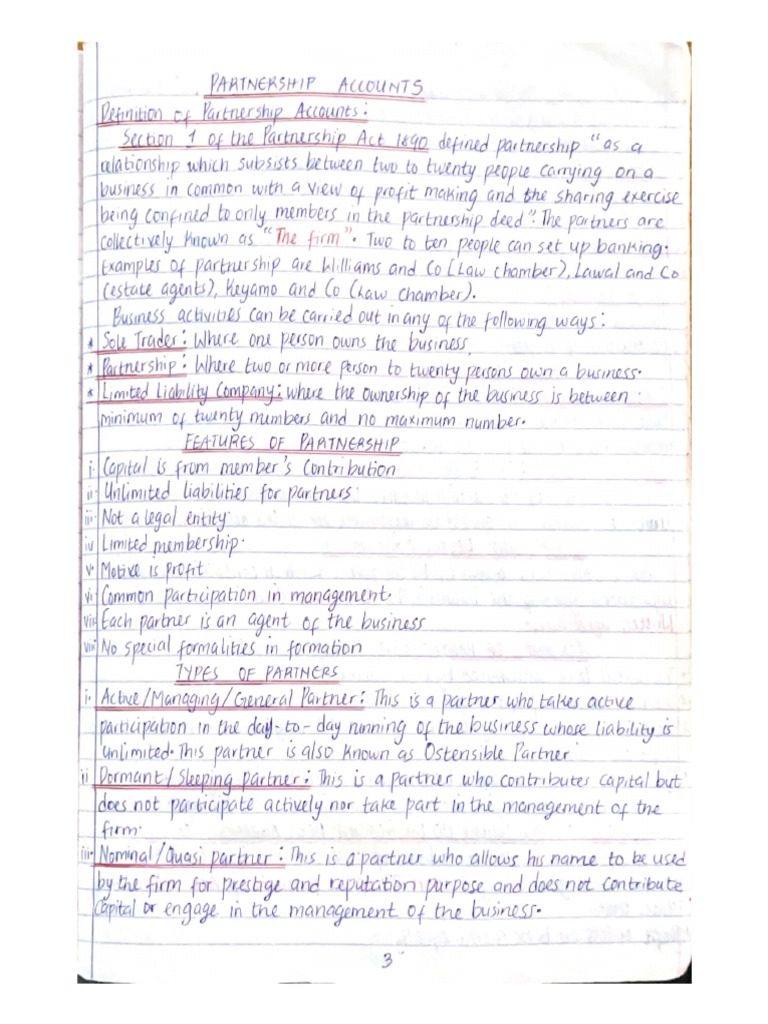 PARTNERSHIP ACCOUNTS
Definition of Partnership Accounts:
Section 1 of the Partnership Act 1890 defined partnership "as a
relationship which subsists between two to twenty people carrying on a
business in common with a view of profit making and the sharing exercise
being confined to only members in the partnership deed". The partners are
collectively known as "The firm". Two to ten people can set up banking.
Examples of partnership are Williams and Co (Law chamber), Lawal and Co
(estate agents), Keyamo and Co (Law chamber).
Business activities can be carried out in any of the following ways:
* Sole Trader: Where one person owns the business.
* Partnership: Where two or more person to twenty persons own a business.
* Limited Liability Company: where the ownership of the business is between
minimum of twenty members and no maximum number.
FEATURES OF PARTNERSHIP
i. Capital is from member's contribution
ii. Unlimited liabilities for partners
iii. Not a legal entity
iv Limited membership.
v. Motive is profit
vi. Common participation in management.
vii. Each partner is an agent of the business
viii No special formalities in formation
TYPES OF PARTNERS
i. Active/Managing/General Partner: This is a partner who takes active
participation in the day-to-day running of the business whose liability is
unlimited. This partner is also known as Ostensible Partner
ii Dormant/Sleeping partner: This is a partner who contributes capital but
does not participate actively nor take part in the management of the
firm.
iii. Nominal/Quasi partner: This is a partner who allows his name to be used
by the firm for prestige and reputation purpose and does not contribute
capital or engage in the management of the business.
3